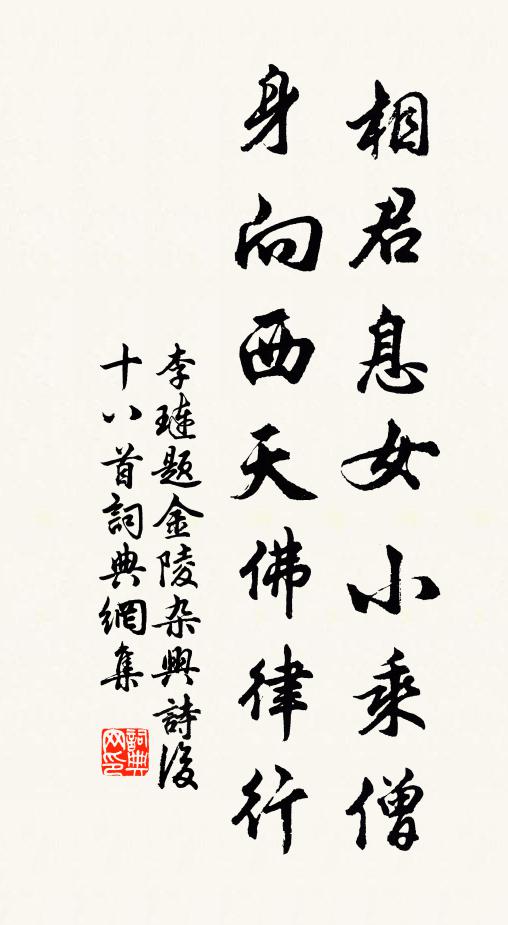 相君息女小乘僧
身向西天佛律行
李璉题金陵杂興詩後
十八首詞典網集
詞典
网印